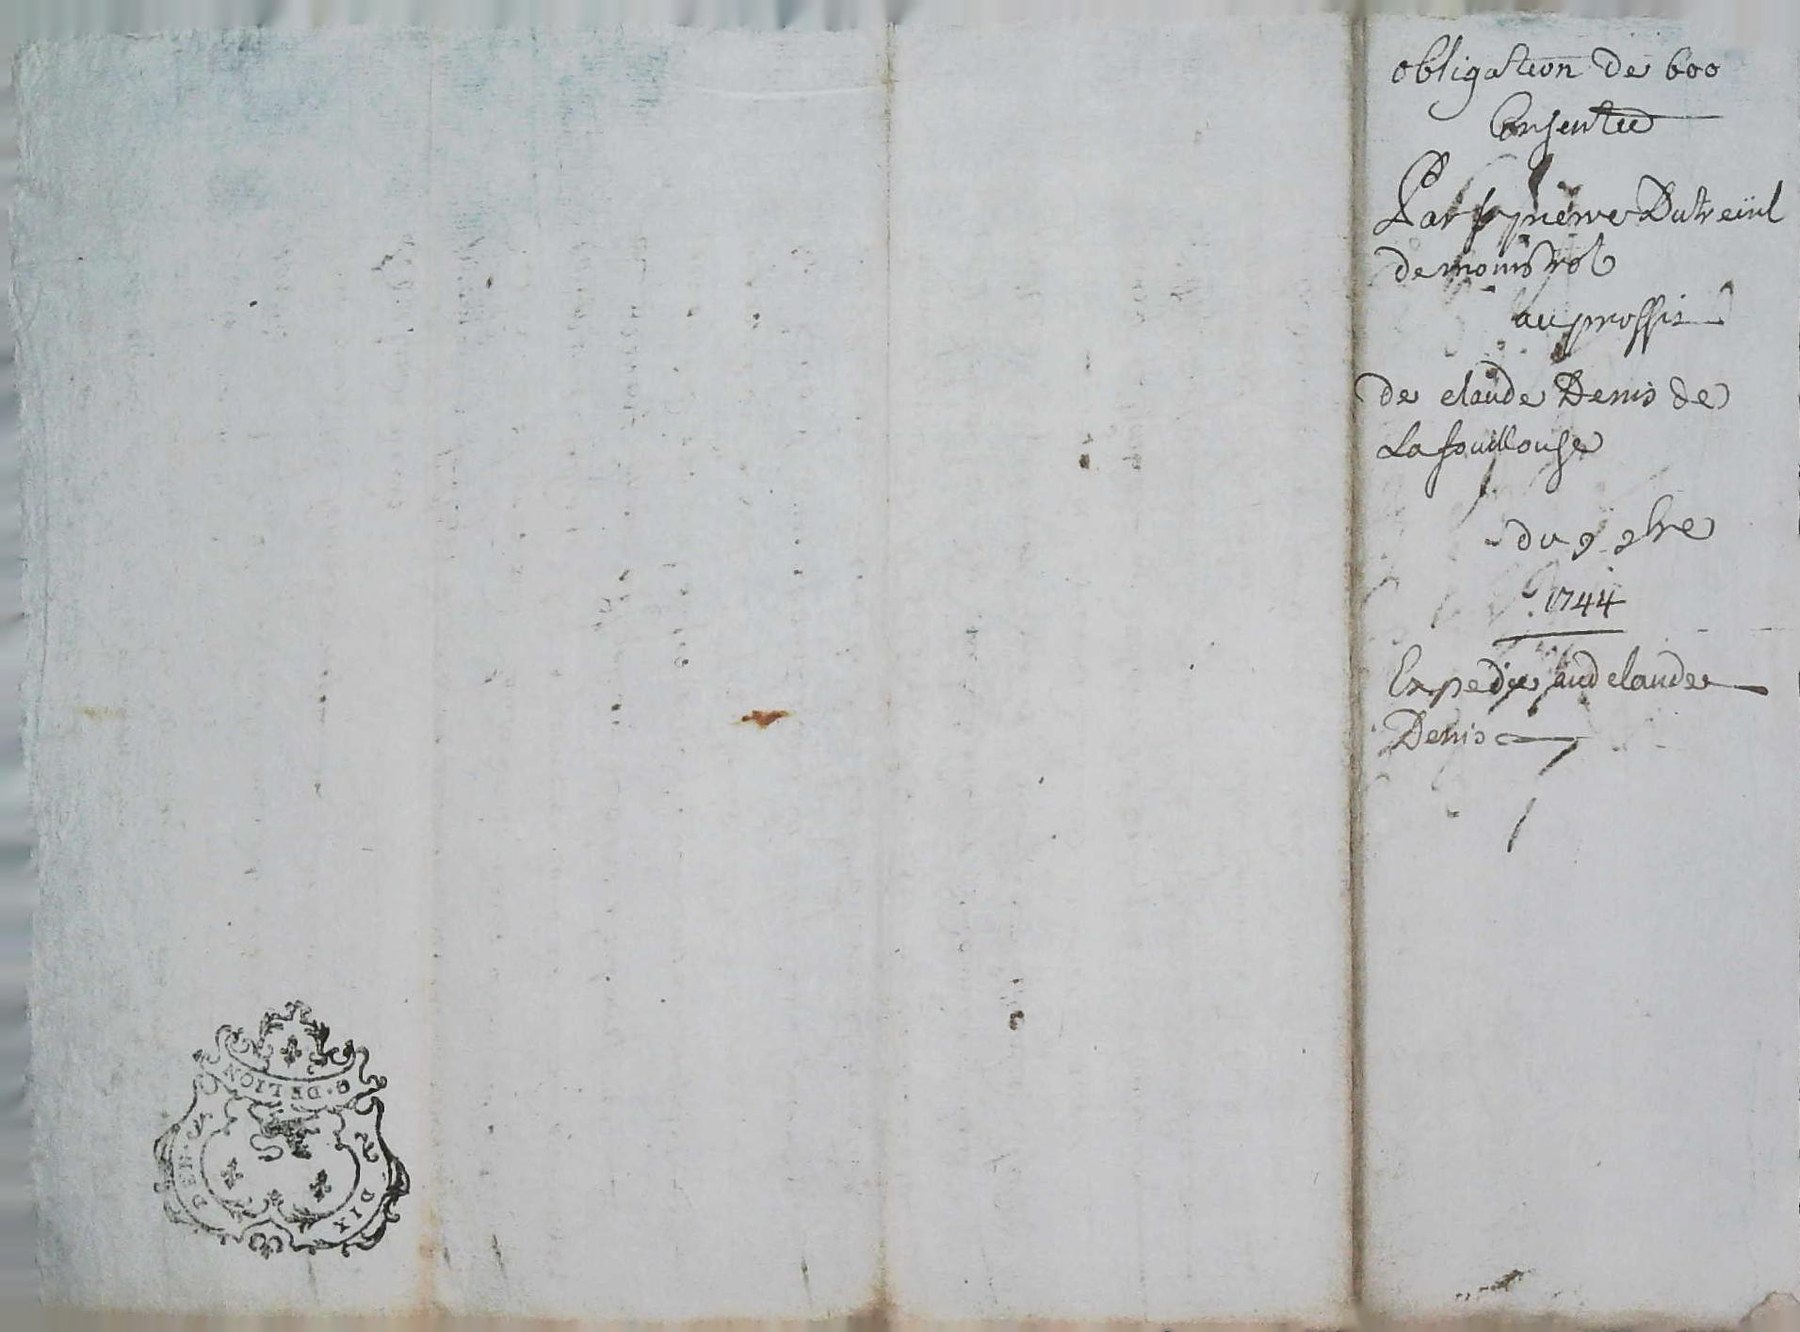 obligation de 600
Consentie
Par sr pierre Dutreüil
de monistrol
au proffit
de claude Denis de
Lafouillouse
du 9 9bre
1744
Expediee aud claude
Denis
G. DE LION
DIX DEN.